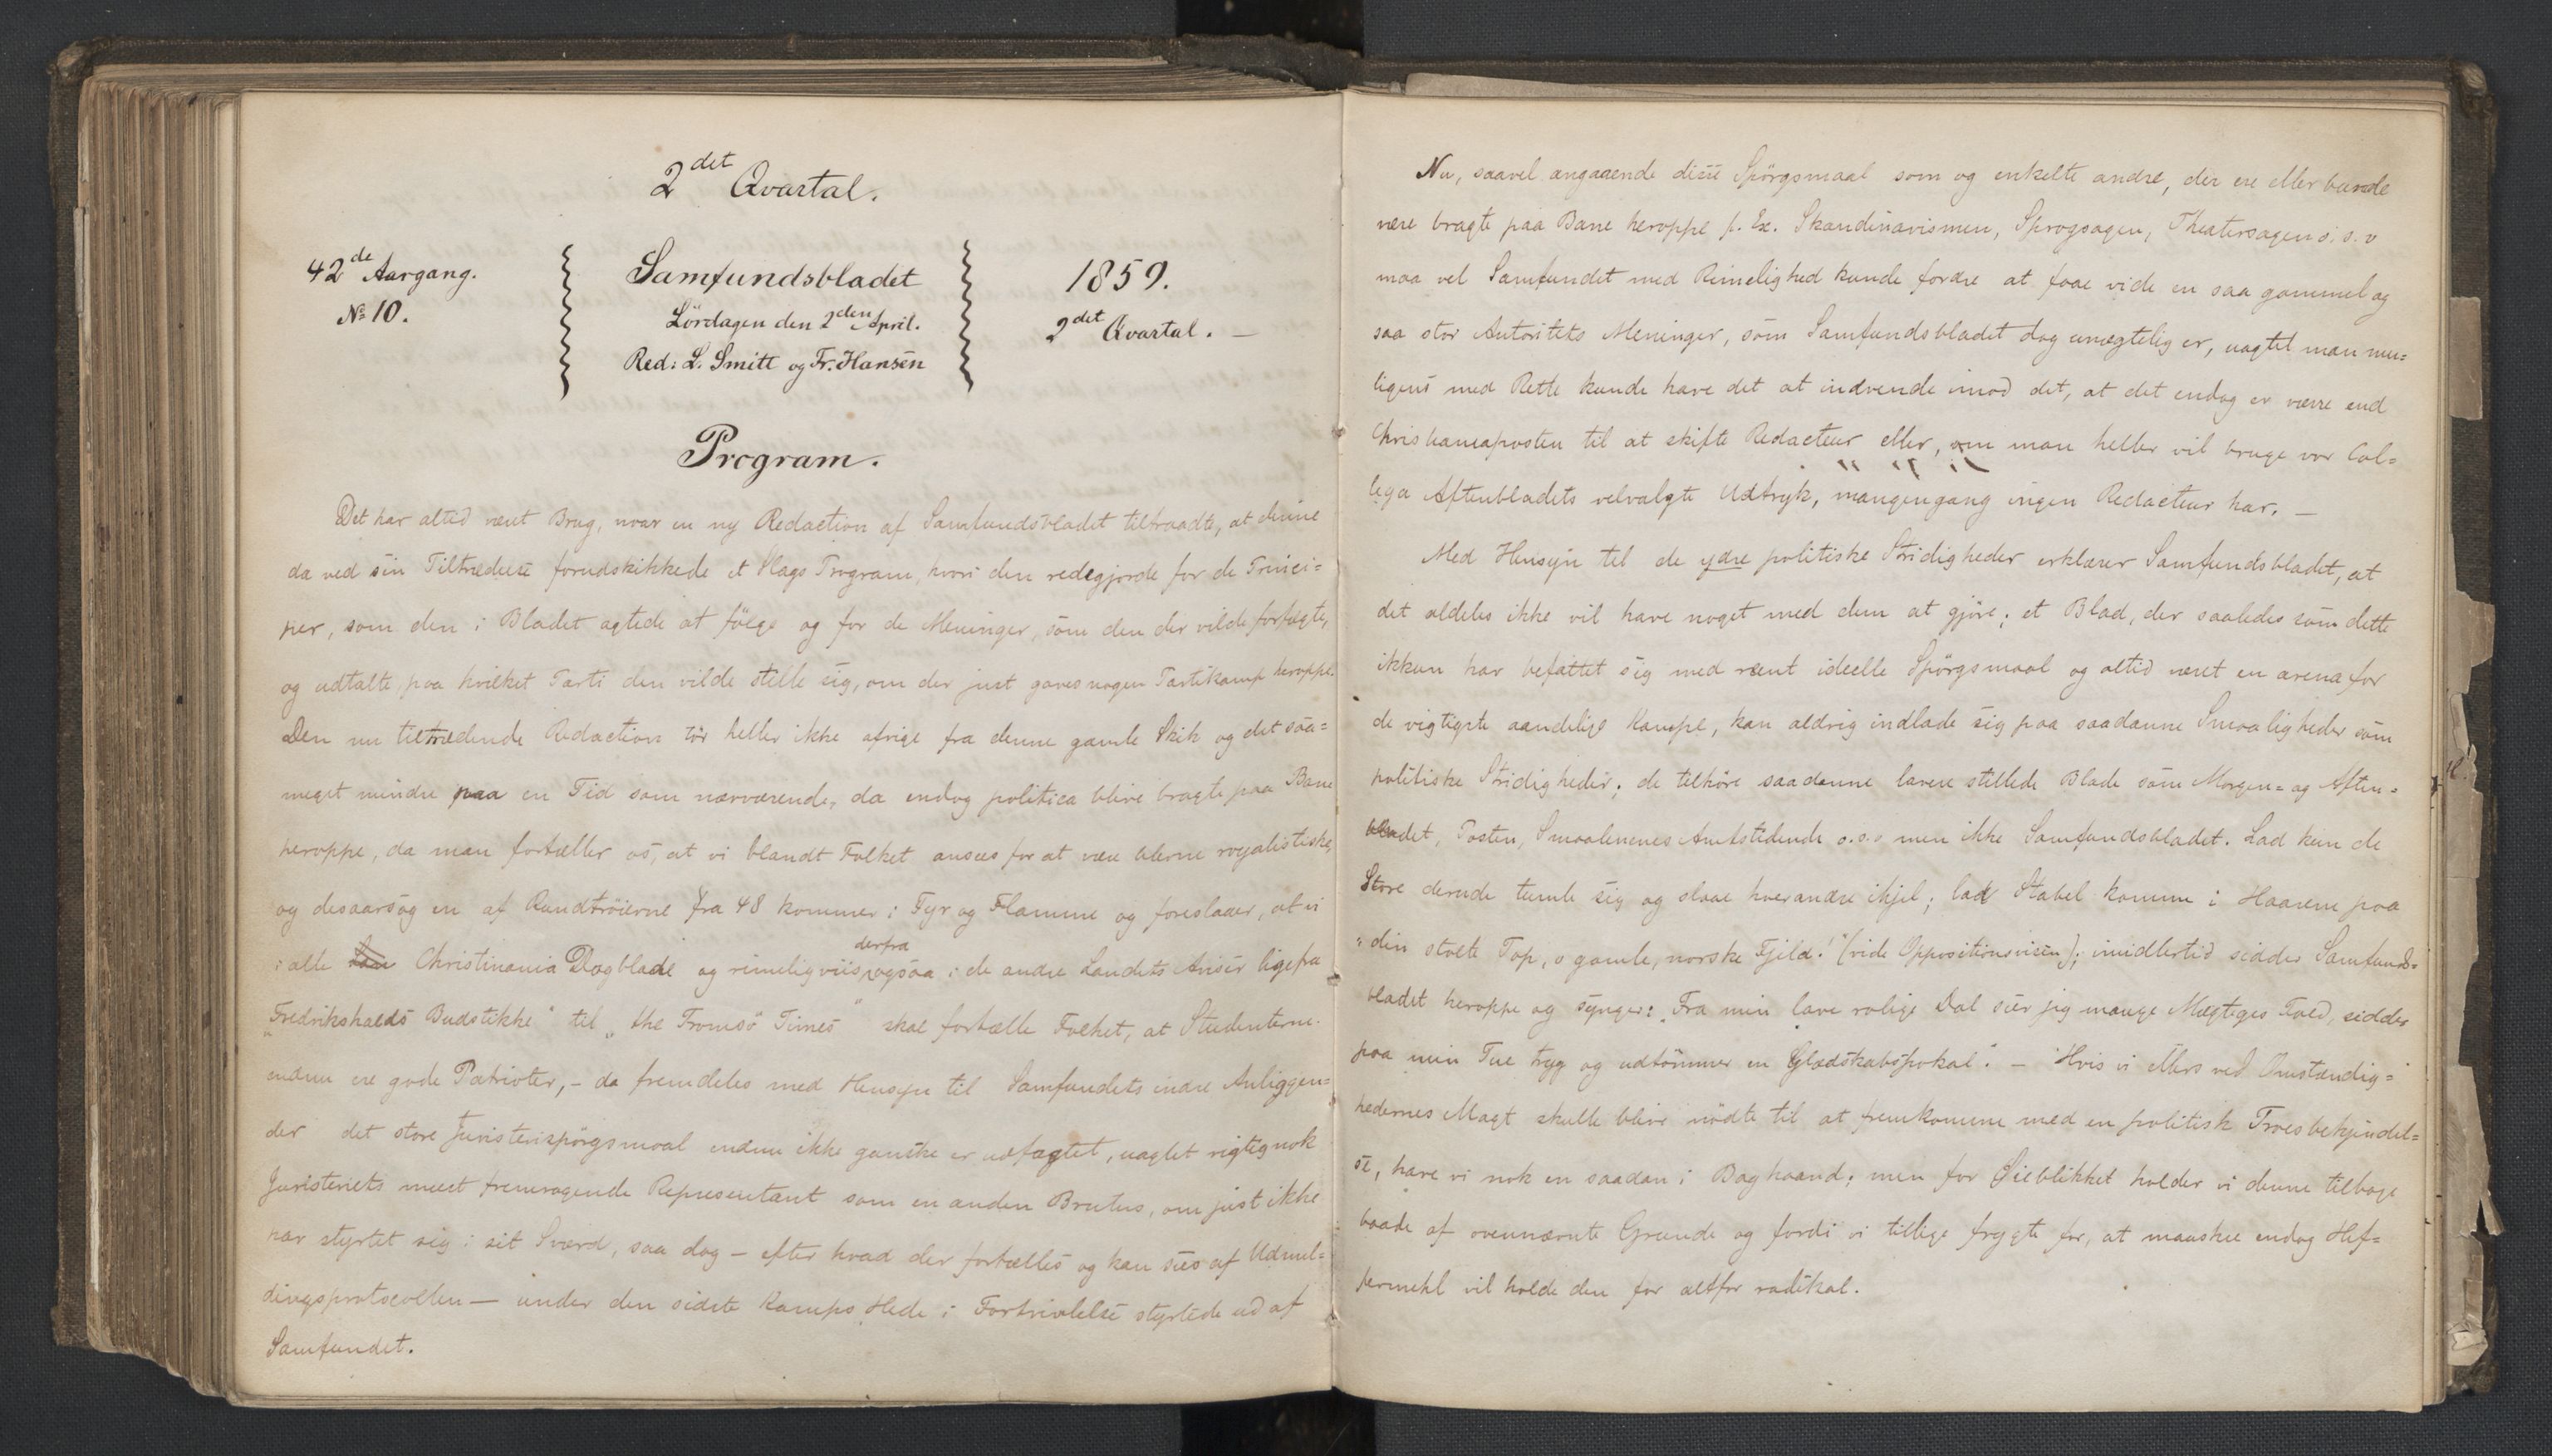 2det Qvartal.
42de Aargang.
No 10.
Samfundsbladet
Lördagen den 2den April.
Red: L. Smitt og Fr. Hansen
1859.
2det Qvartal. —
Program.
Det har altid været Brug, naar en ny Redaction af Samfundsbladet tiltraadte, at denne
da ved sin Tiltrædelse forudskikkede et Slags Program, hvori den redegjorde for de Princi=
per, som den i Bladet agtede at fölge og for de Meninger, som den der vilde forfægte,
og udtalte, paa hvilket Parti den vilde stille sig, om der just gaves nogen Partikamp heroppe.
Den nu tiltrædende Redaction tör heller ikke afvige fra denne gamle Skik og det saa=
meget mindre paa en Tid som nærværende, da endog politica blive bragte paa Bane
heroppe, da man fortæller os, at vi blandt Folket ansees for at være blevne royalistiske,
og desaarsog en af Rundtröierne fra 48 kommer i Fyr og Flamme og foreslaaer, at vi
i alle Christinania Dagblade og rimeligviis derfra ogsaa i de andre Landets Aviser ligefra
"Fredrikshalds Budstikke" til "the Tromsö Times" skal fortælle Folket, at Studenterne
endnu ere gode Patrioter, – da fremdeles med Hensyn til Samfundets indre Anliggen=
der det store Juristerispörgsmaal endnu ikke ganske er udfægtet, uagtet rigtignok
Juristeriets meest fremragende Representant som en anden Brutus, om just ikke
har styrtet sig i sit Sværd, saa dog – efter hvad der fortælles og kan sees af Udmel=
dingsprotocollen — under den sidste Kamps Hede i Fortvivlelse styrtede ud af
Samfundet.
Nu, saavel angaaende disse Spörgsmaal som og enkelte andre, der ere eller burde
være bragte paa Bane heroppe f. Ex. Skandinavismen, Sprogsagen, Theatersagen o. s. v
maa vel Samfundet med Rimelighed kunde fordre at faae vide en saa gammel og
saa stor Autoritets Meninger, som Samfundsbladet dog unægtelig er, uagtet man mu=
ligens med Rette kunde have det at indvende imod det, at det endog er værre end
Christianiaposten til at skifte Redacteur eller, om man heller vil bruge vor Col=
lega Aftenbladets velvalgte Udtryk, mangengang ingen Redacteur har. —
Med Hensyn til de ydre politiske Stridigheder erklærer Samfundsbladet, at
det aldeles ikke vil have noget med dem at gjöre; et Blad, der saaledes som dette
ikkun har befattet sig med reent ideelle Spörgsmaal og altid været en arena for
de vigtigste aandelige Kampe, kan aldrig indlade sig paa saadanne Smaaligheder som
politiske Stridigheder; de tilhöre saadanne lavere stillede Blade som Morgen= og Aften=
bladet, Posten, Smaalenenes Amtstidende o.s.v men ikke Samfundsbladet. Lad kun de
Store derude tumle sig og slaae hverandre ihjel; lad Stabel komme i Haarene paa
"din stolte Top, o gamle, norske Fjeld!" (vide Oppositionsvisen); imidlertid sidder Samfunds=
bladet heroppe og synger: "Fra min lave rolige Dal seer jeg mange Mægtiges Fald, sidder
paa min Tue tryg og udtömmer en Glædskabspokal". – Hvis vi ellers ved Omstændig=
hedernes Magt skulle blive nödte til at fremkomme med en politisk Troesbekjendel=
se, have vi nok en saadan i Baghaand; men for Öieblikket holder vi denne tilbage
baade af ovennævnte Grunde og fordi vi tillige frygte for, at maaskee endog Hef=
termehl vil holde den for altfor radikal.